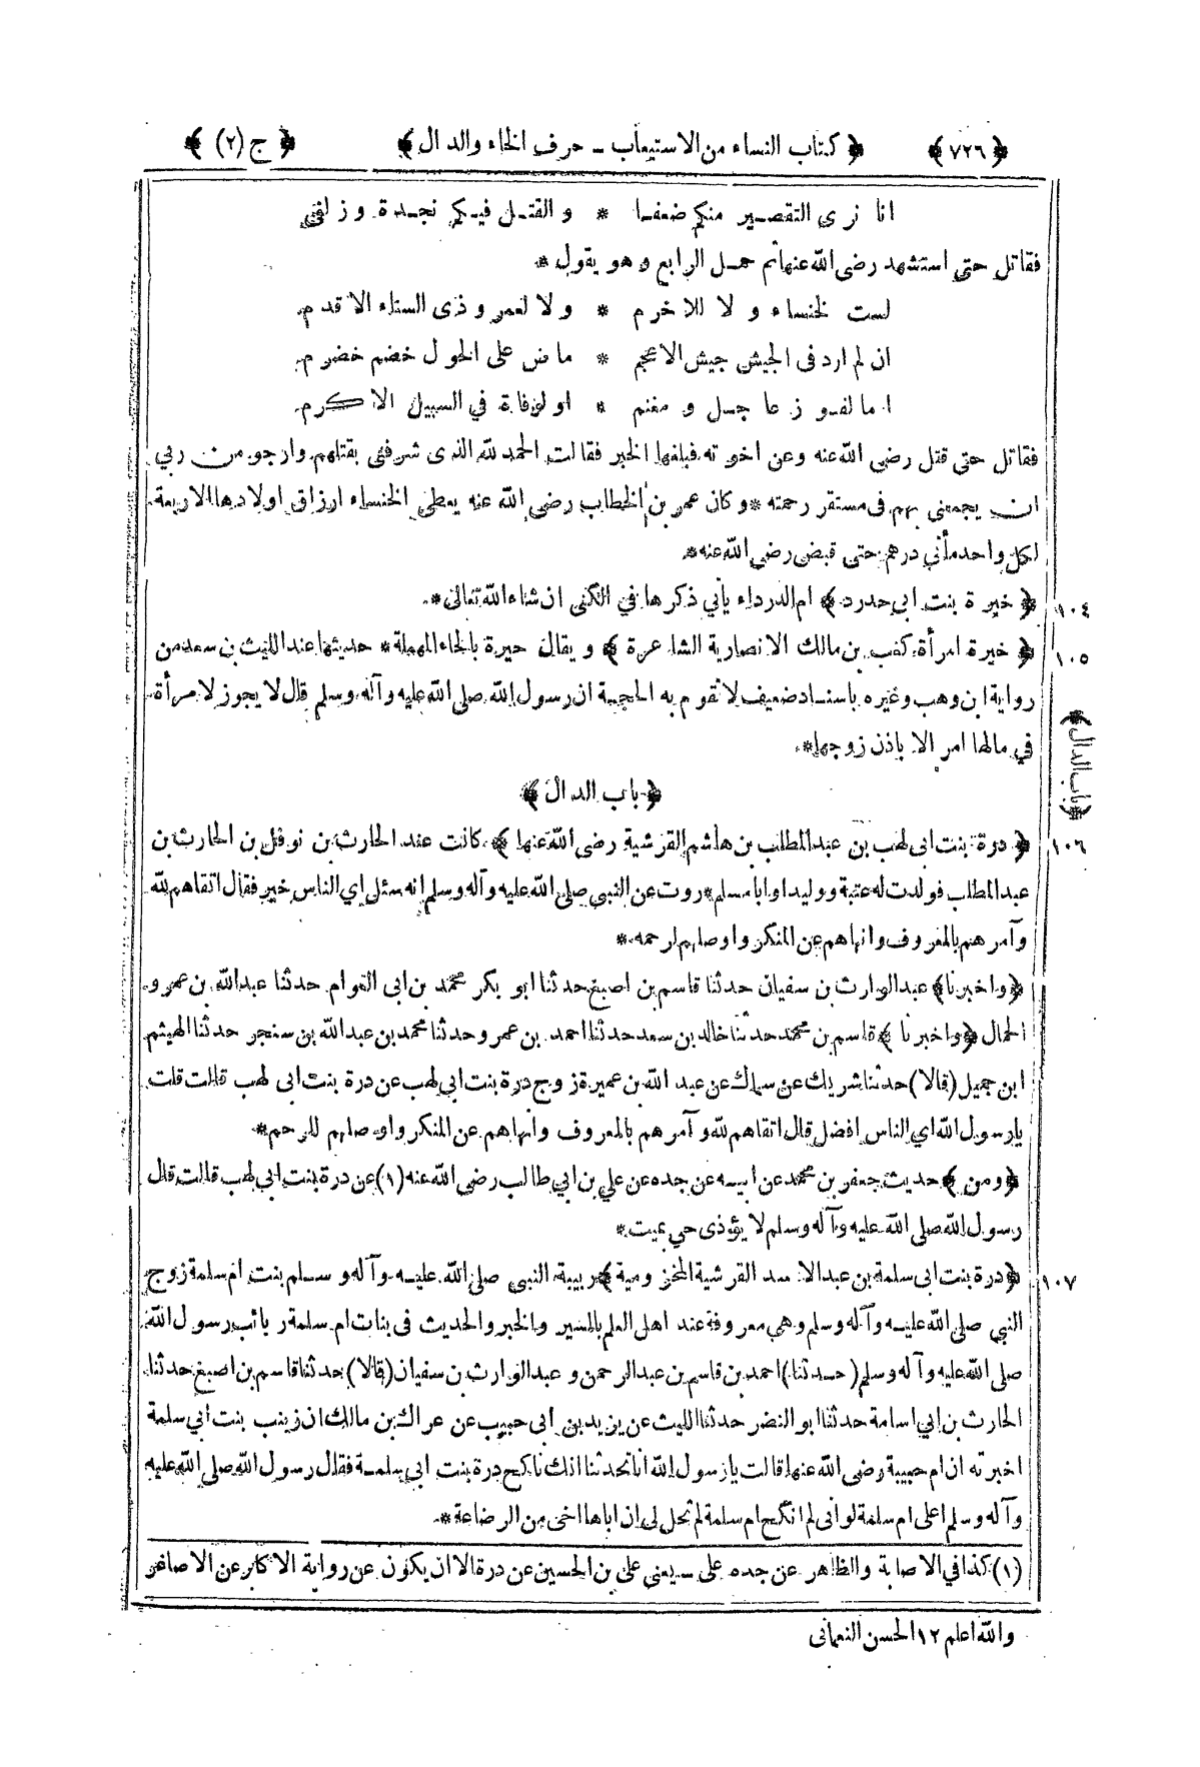 ﴿٧٢٦﴾ ﴿كتاب النساء من الاستيعاب – حرف الخاء والدال﴾ ﴿ج (٢)﴾
انا نرى التقصير منكم ضعفا * والقتل فيكم نجدة وزلفى
فقاتل حتى استشهد رضى الله عنه ثم حمل الرابع وهو يقول *
لست لخنساء ولا للاخرم * ولا لعمرو ذى السناء الاقدم
ان لم ارد فى الجيش جيش الاعجم * ماض على الحول خضم خضرم
اما لفوز عاجل ومغنم * او لوفاة في السبيل الاكرم
فقاتل حتى قتل رضى الله عنه وعن اخوته فبلغها الخبر فقالت الحمد لله الذى شرفنى بقتلهم وارجو من ربي
ان يجمعنى بهم فى مستقر رحمته * وكان عمر بن الخطاب رضى الله عنه يعطى الخنساء ارزاق اولادها الاربعة
لكل واحد مأتي درهم حتى قبض رضى الله عنه *
١٠٤ ﴿خيرة بنت ابي حدرد﴾ ام الدرداء يأتي ذكرها في الكنى ان شاء الله تعالى *
١٠٥ ﴿خيرة امرأة كعب بن مالك الانصارية الشاعرة﴾ ويقال حيرة بالحاء المهملة * حديثها عند الليث بن سعد من
رواية ابن وهب وغيره باسناد ضعيف لا تقوم به الحجة ان رسول الله صلى الله عليه وآله وسلم قال لا يجوز لامرأة
في مالها امر الا باذن زوجها *
﴿باب الدال﴾
﴿باب الدال﴾
١٠٦ ﴿درة بنت ابى لهب بن عبد المطلب بن هاشم القرشية رضى الله عنها﴾ كانت عند الحارث بن نوفل بن الحارث بن
عبد المطلب فولدت له عتبة ووليدا وابا مسلم * روت عن النبي صلى الله عليه وآله وسلم انه سئل اي الناس خير فقال اتقاهم لله
وآمرهم بالمعروف وانهاهم عن المنكر واوصلهم لرحمه *
﴿واخبرنا﴾ عبد الوارث بن سفيان حدثنا قاسم بن اصبغ حدثنا ابو بكر محمد بن ابى العوام حدثنا عبد الله بن عمرو
الحمال ﴿واخبرنا﴾ قاسم بن محمد حدثنا خالد بن سعد حدثنا احمد بن عمرو حدثنا محمد بن عبد الله بن سنجر حدثنا الهيثم
ابن جميل (قالا) حدثنا شريك عن سماك عن عبد الله بن عميرة زوج درة بنت ابى لهب عن درة بنت ابى لهب قالت قلت
يا رسول الله اي الناس افضل قال اتقاهم لله وآمرهم بالمعروف وانهاهم عن المنكر واوصلهم للرحم *
﴿ومن﴾ حديث جعفر بن محمد عن ابيه عن جده عن علي بن ابي طالب رضى الله عنه (١) عن درة بنت ابي لهب قالت قال
رسول الله صلى الله عليه وآله وسلم لا يؤذى حي بميت *
١٠٧ ﴿درة بنت ابى سلمة بن عبد الاسد القرشية المخزومية﴾ ربيبة النبي صلى الله عليه وآله وسلم بنت ام سلمة زوج
النبي صلى الله عليه وآله وسلم وهى معروفة عند اهل العلم بالسير والخبر والحديث فى بنات ام سلمة ربائب رسول الله
صلى الله عليه وآله وسلم (حدثنا) احمد بن قاسم بن عبد الرحمن وعبد الوارث بن سفيان (قالا) حدثنا قاسم بن اصبغ حدثنا
الحارث بن ابي اسامة حدثنا ابو النضر حدثنا الليث عن يزيد بن ابى حبيب عن عراك بن مالك ان زينب بنت ابي سلمة
اخبرته ان ام حبيبة رضى الله عنها قالت يا رسول الله انا تحدثنا انك ناكح درة بنت ابي سلمة فقال رسول الله صلى الله عليه
وآله وسلم اعلى ام سلمة لو انى لم انكح ام سلمة لم تحل لى ان اباها اخى من الرضاعة *
(١) كذا في الاصابة والظاهر عن جده على – يعنى على بن الحسين عن درة الا ان يكون عن رواية الاكابر عن الاصاغر
والله اعلم ١٢ الحسن النعمانى